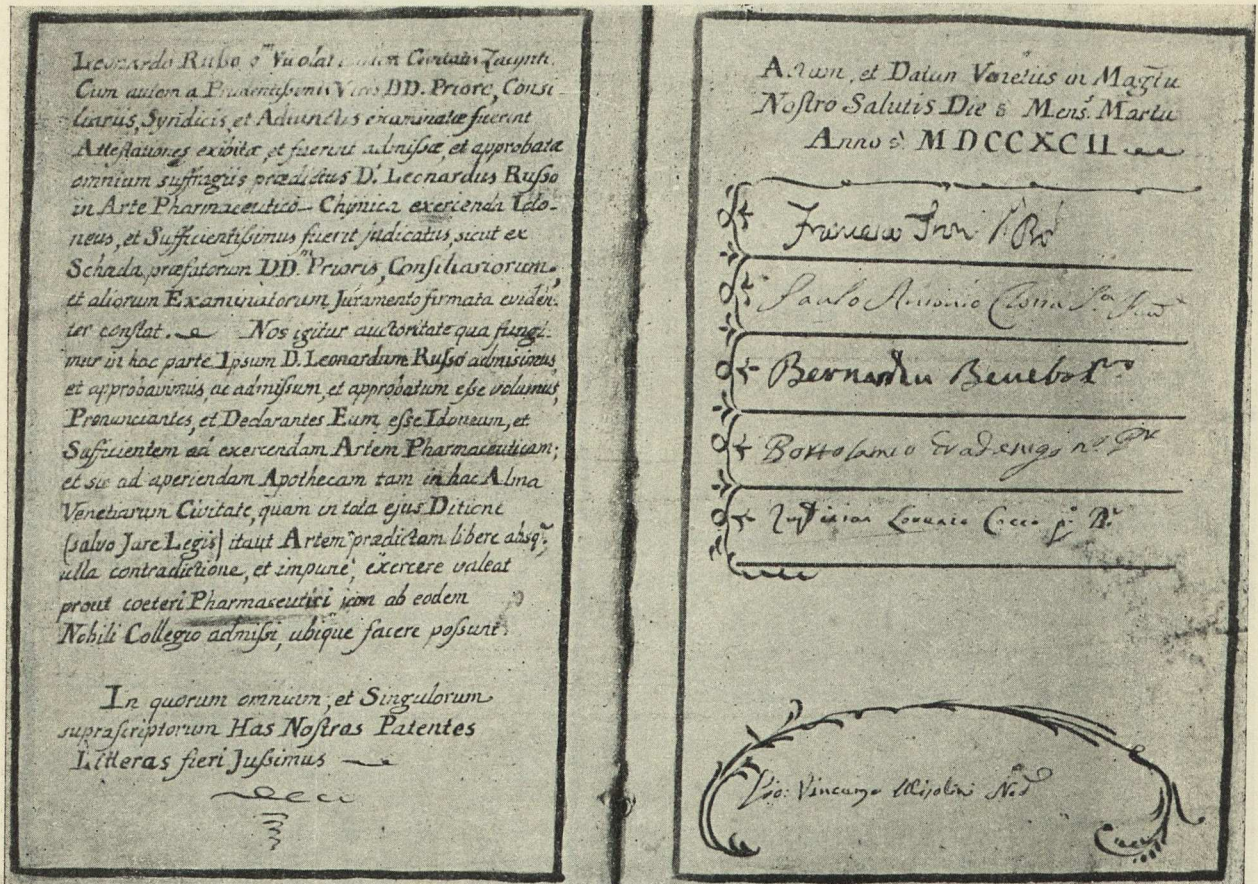 Leonardo Ruso qm Civitatis Zacynti.
Cum autem a Prudentissimis Viris DD. Priore, Consi-
liarus, Syndicis, et Adiunctis examinatæ fuerint
Attestationes exibitæ, et fuerint admissæ, et approbatæ
omnium suffragus prædictus D.s Leonardus Russo
in Arte Pharmaceutico-Chymica exercenda Ido-
neus, et Sufficientissimus fuerit judicatus, sicut ex
Scheda præfatorum DD.m Prioris, Consiliariorum,
et aliorum Examinatorum Juramento firmata eviden-
ter constat. Nos igitur auctoritate qua fungi-
mur in hac parte Ipsum D. Leonardum Russo admisimus,
et approbavimus, ac admissum, et approbatum esse volumus,
Pronunciantes, et Declarantes Eum esse Idoneum, et
Sufficientem ad exercendam Artem Pharmaceuticam;
et sic ad aperiendam Apothecam tam in hac Alma
Venetiarum Civitate, quam in tota ejus Ditione
(salvo Jure Legis) itaut Artem prædictam libere absq.
ulla contradictione, et impune, exercere valeat
prout coeteri Pharmaseutici jam ab eodem
Nobili Collegio admissi, ubique facere possunt.
In quorum omnium, et Singulorum
suprascriptorum Has Nostras Patentes
Litteras fieri Jussimus
Actum, et Datum Venetiis in Mag.tu
Nostro Salutis Die 8 Mens. Martii
Anno MDCCXCII
Francesco
Paulo Antonio
Bernardin
Bortolamio
Lorenzo
Gio: Vincenzo Nod